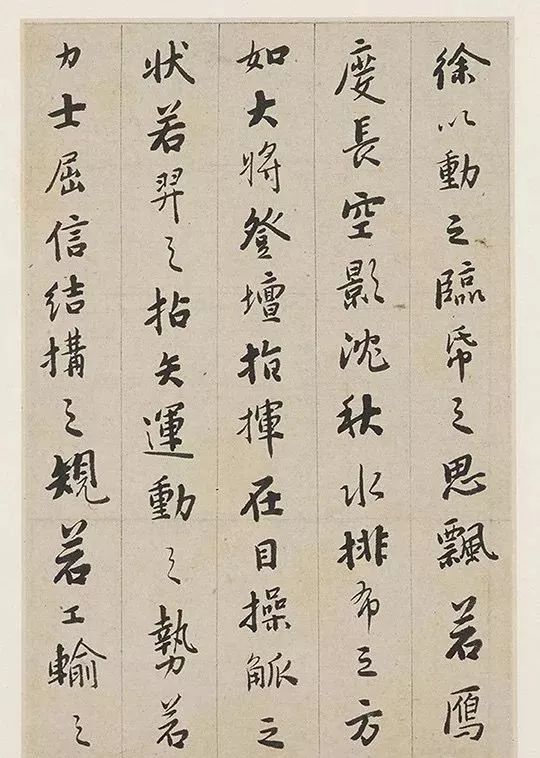 徐以動之臨帋之思飄若鴈
度長空影沈秋水排布之方
如大将登壇指揮在目操觚之
状若羿之拈矢運動之勢若
力士屈信結構之規若工輸之